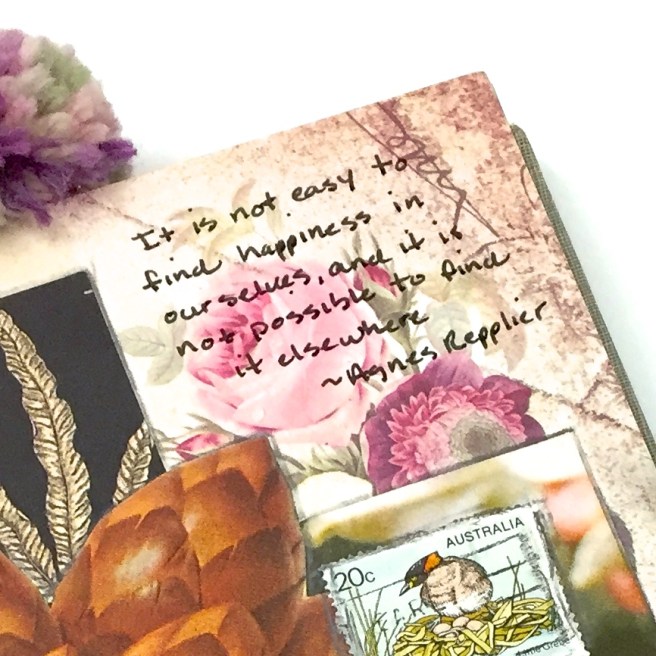 It is not easy to
find happiness in
ourselves, and it is
not possible to find
it elsewhere
~Agnes Repplier
AUSTRALIA
20c